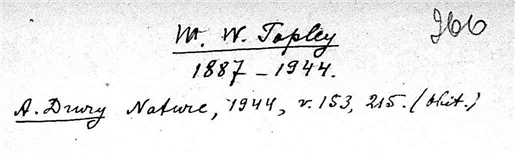 266
M. W. Topley
1887 - 1944.
A. Drury Nature, 1944, v. 153, 215. (Obit.)